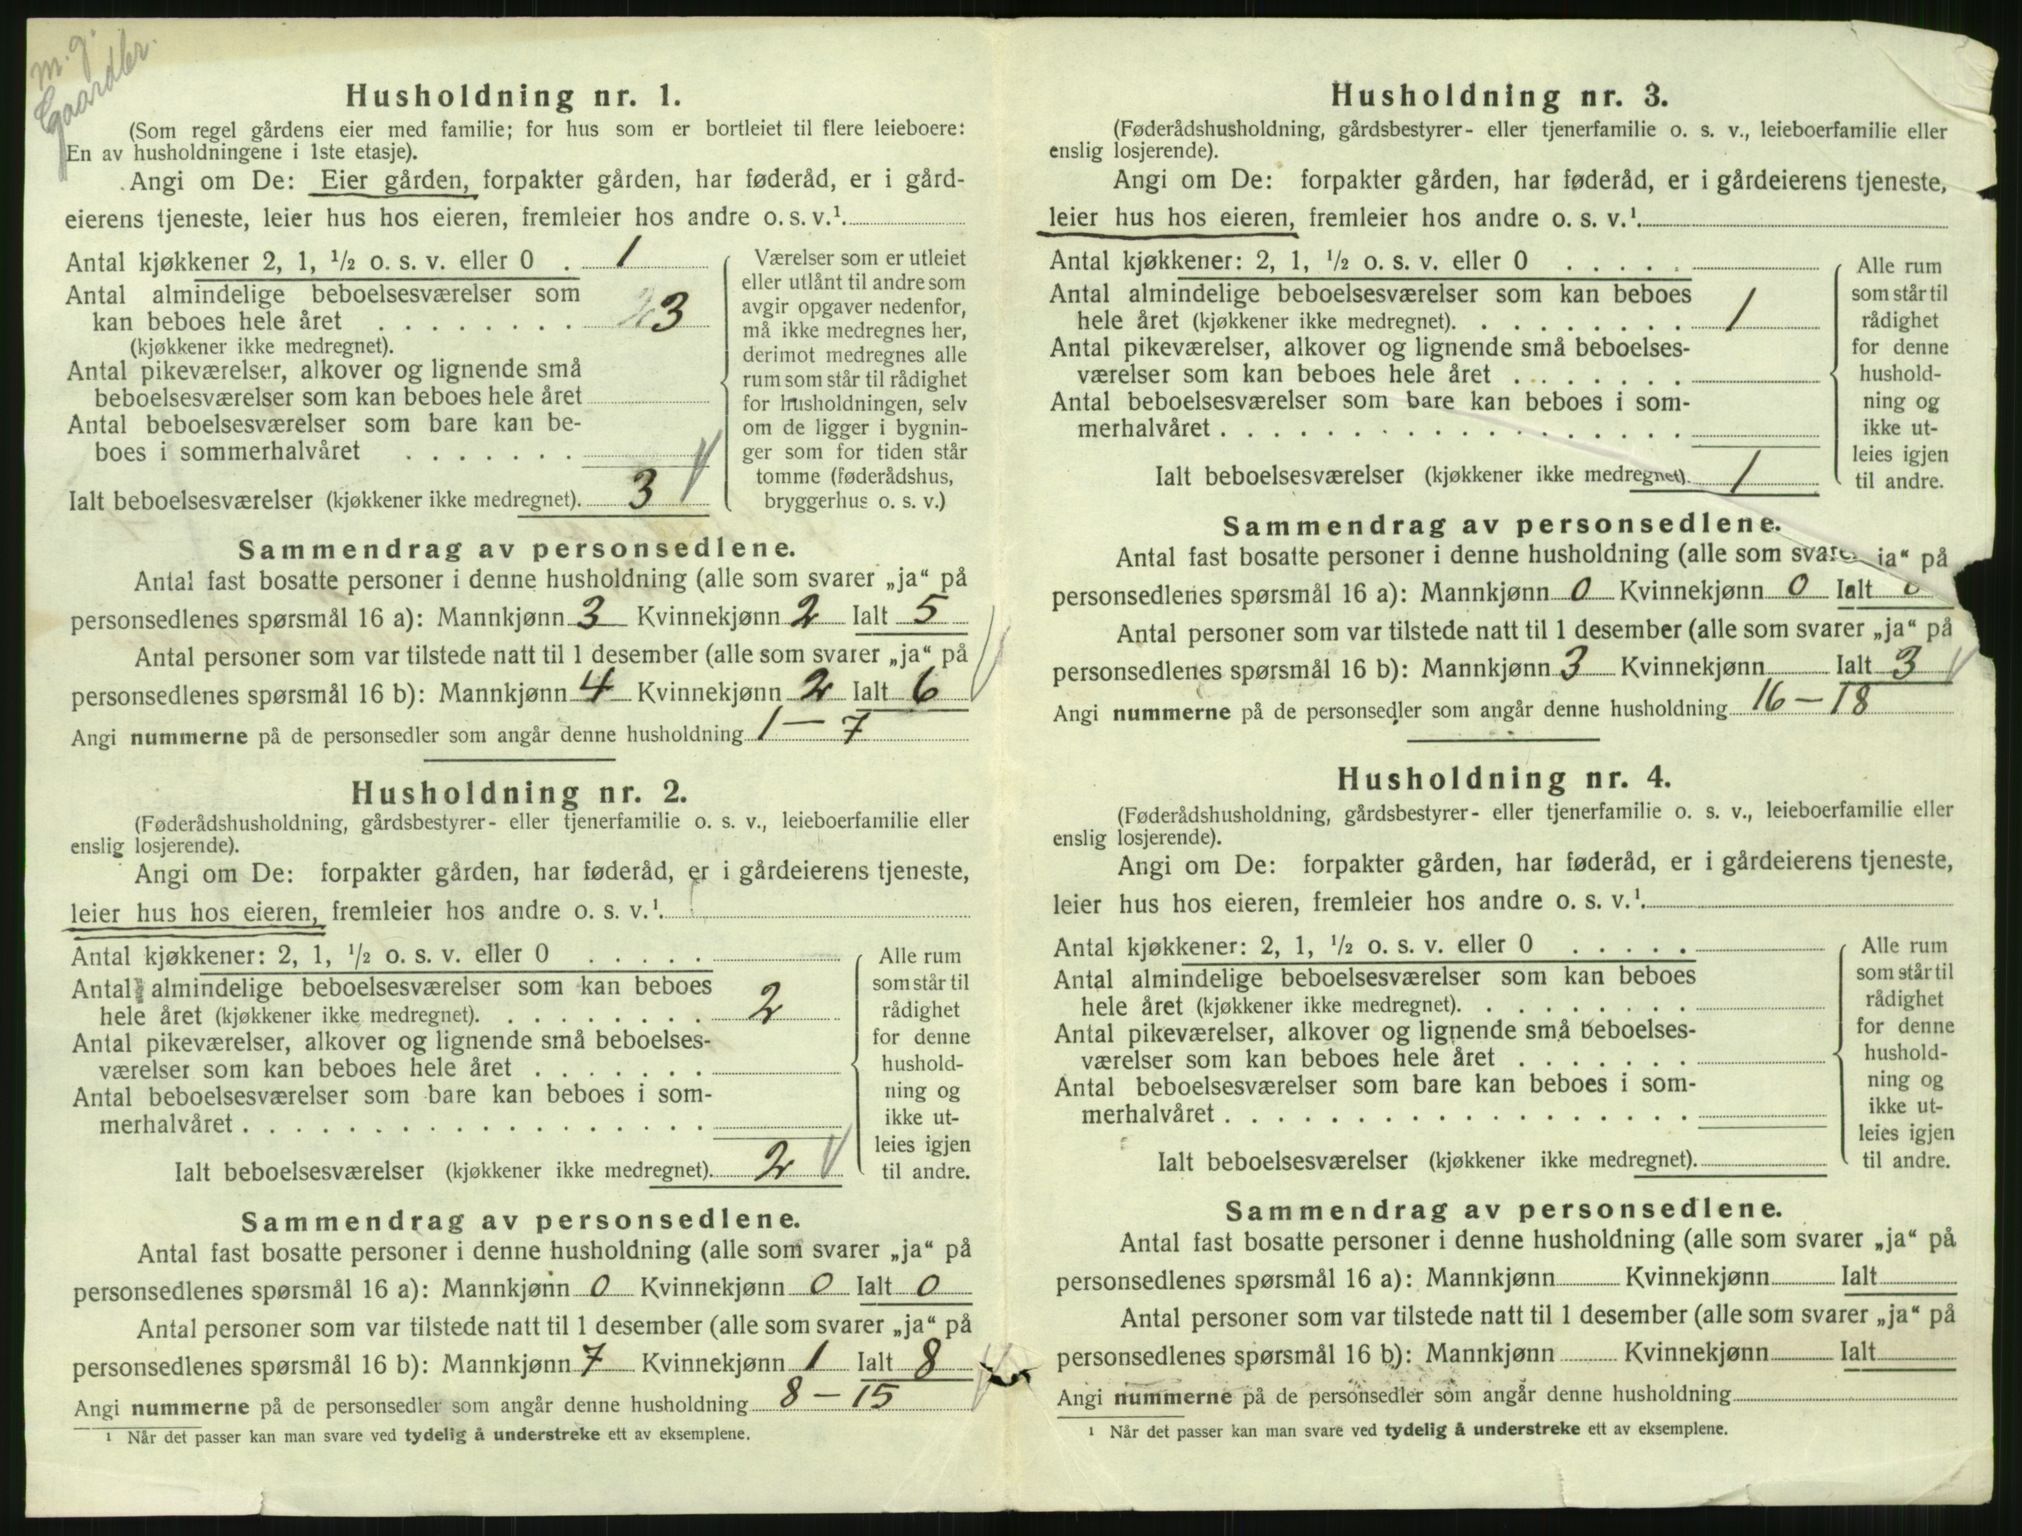 m. g.
Gaardbr.
Husholdning nr. 1.
(Som regel gårdens eier med familie; for hus som er bortleiet til flere leieboere:
En av husholdningene i 1ste etasje).
Angi om De: Eier gården, forpakter gården, har føderåd, er i gård-
eierens tjeneste, leier hus hos eieren, fremleier hos andre o. s. v.¹
Antal kjøkkener 2, 1, ½ o. s. v. eller 0 . 1
Antal almindelige beboelsesværelser som
kan beboes hele året . . . . . . . . 3
(kjøkkener ikke medregnet).
Antal pikeværelser, alkover og lignende små
beboelsesværelser som kan beboes hele året
Antal beboelsesværelser som bare kan be-
boes i sommerhalvåret . . . . . . .
Ialt beboelsesværelser (kjøkkener ikke medregnet). 3
Værelser som er utleiet
eller utlånt til andre som
avgir opgaver nedenfor,
må ikke medregnes her,
derimot medregnes alle
rum som står til rådighet
for husholdningen, selv
om de ligger i bygnin-
ger som for tiden står
tomme (føderådshus,
bryggerhus o. s. v.)
Sammendrag av personsedlene.
Antal fast bosatte personer i denne husholdning (alle som svarer „ja“ på
personsedlenes spørsmål 16 a): Mannkjønn 3 Kvinnekjønn 2 Ialt 5
Antal personer som var tilstede natt til 1 desember (alle som svarer „ja“ på
personsedlenes spørsmål 16 b): Mannkjønn 4 Kvinnekjønn 2 Ialt 6
Angi nummerne på de personsedler som angår denne husholdning 1 – 7
Husholdning nr. 2.
(Føderådshusholdning, gårdsbestyrer- eller tjenerfamilie o. s. v., leieboerfamilie eller
enslig losjerende).
Angi om De: forpakter gården, har føderåd, er i gårdeierens tjeneste,
leier hus hos eieren, fremleier hos andre o. s. v.¹.
Antal kjøkkener: 2, 1, ½ o. s. v. eller 0 . . . . .
Antal almindelige beboelsesværelser som kan beboes
hele året (kjøkkener ikke medregnet). . . . . . . . . 2
Antal pikeværelser, alkover og lignende små beboelses-
værelser som kan beboes hele året . . . . . . .
Antal beboelsesværelser som bare kan beboes i som-
merhalvåret . . . . . . . . . . . . . . . . . .
Ialt beboelsesværelser (kjøkkener ikke medregnet). 2
Alle rum
som står til
rådighet
for denne
hushold-
ning og
ikke ut-
leies igjen
til andre.
Sammendrag av personsedlene.
Antal fast bosatte personer i denne husholdning (alle som svarer „ja“ på
personsedlenes spørsmål 16 a): Mannkjønn 0 Kvinnekjønn 0 Ialt 0
Antal personer som var tilstede natt til 1 desember (alle som svarer „ja“ på
personsedlenes spørsmål 16 b): Mannkjønn 7 Kvinnekjønn 1 Ialt 8
Angi nummerne på de personsedler som angår denne husholdning 8 – 15
¹ Når det passer kan man svare ved tydelig å understreke ett av eksemplene.
Husholdning nr. 3.
(Føderådshusholdning, gårdsbestyrer- eller tjenerfamilie o. s. v., leieboerfamilie eller
enslig losjerende).
Angi om De: forpakter gården, har føderåd, er i gårdeierens tjeneste,
leier hus hos eieren, fremleier hos andre o. s. v.¹.
Antal kjøkkener: 2, 1, ½ o. s. v. eller 0 . . . . .
Antal almindelige beboelsesværelser som kan beboes
hele året (kjøkkener ikke medregnet). . . . . . . . . 1
Antal pikeværelser, alkover og lignende små beboelses-
værelser som kan beboes hele året . . . . . . .
Antal beboelsesværelser som bare kan beboes i som-
merhalvåret . . . . . . . . . . . . . . . . . .
Ialt beboelsesværelser (kjøkkener ikke medregnet). 1
Alle rum
som står til
rådighet
for denne
hushold-
ning og
ikke ut-
leies igjen
til andre.
Sammendrag av personsedlene.
Antal fast bosatte personer i denne husholdning (alle som svare ja“ på
personsedlenes spørsmål 16 a): Mannkjønn 0 Kvinnekjønn 0 Ialt 0
Antal personer som var tilstede natt til 1 desember (alle som svarer „ja“ på
personsedlenes spørsmål 16 b): Mannkjønn 3 Kvinnekjønn Ialt 3
Angi nummerne på de personsedler som angår denne husholdning 16 – 18
Husholdning nr. 4.
(Føderådshusholdning, gårdsbestyrer- eller tjenerfamilie o. s. v., leieboerfamilie eller
enslig losjerende).
Angi om De: forpakter gården, har føderåd, er i gårdeierens tjeneste,
leier hus hos eieren, fremleier hos andre o. s. v.¹.
Antal kjøkkener: 2, 1, ½ o. s. v. eller 0 . . . . .
Antal almindelige beboelsesværelser som kan beboes
hele året (kjøkkener ikke medregnet). . . . . . . . .
Antal pikeværelser, alkover og lignende små beboelses-
værelser som kan beboes hele året . . . . . . .
Antal beboelsesværelser som bare kan beboes i som-
merhalvåret . . . . . . . . . . . . . . . . . .
Ialt beboelsesværelser (kjøkkener ikke medregnet).
Alle rum
som står til
rådighet
for denne
hushold-
ning og
ikke ut-
leies igjen
til andre.
Sammendrag av personsedlene.
Antal fast bosatte personer i denne husholdning (alle som svarer „ja“ på
personsedlenes spørsmål 16 a): Mannkjønn Kvinnekjønn Ialt
Antal personer som var tilstede natt til 1 desember (alle som svarer „ja“ på
personsedlenes spørsmål 16 b): Mannkjønn Kvinnekjønn Ialt
Angi nummerne på de personsedler som angår denne husholdning
¹ Når det passer kan man svare ved tydelig å understreke ett av eksemplene.